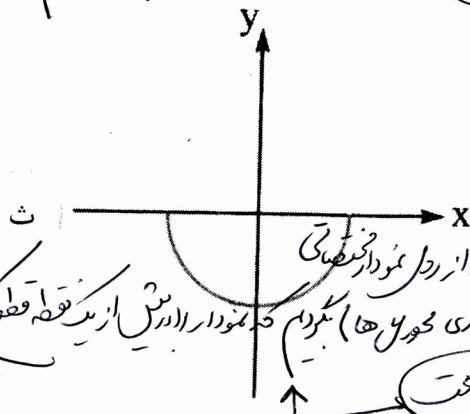 y
x
ث
از روی نمودار مختصاتی
ری محورها) بگردیم که نمودار را در بیش از یک نقطه قطع